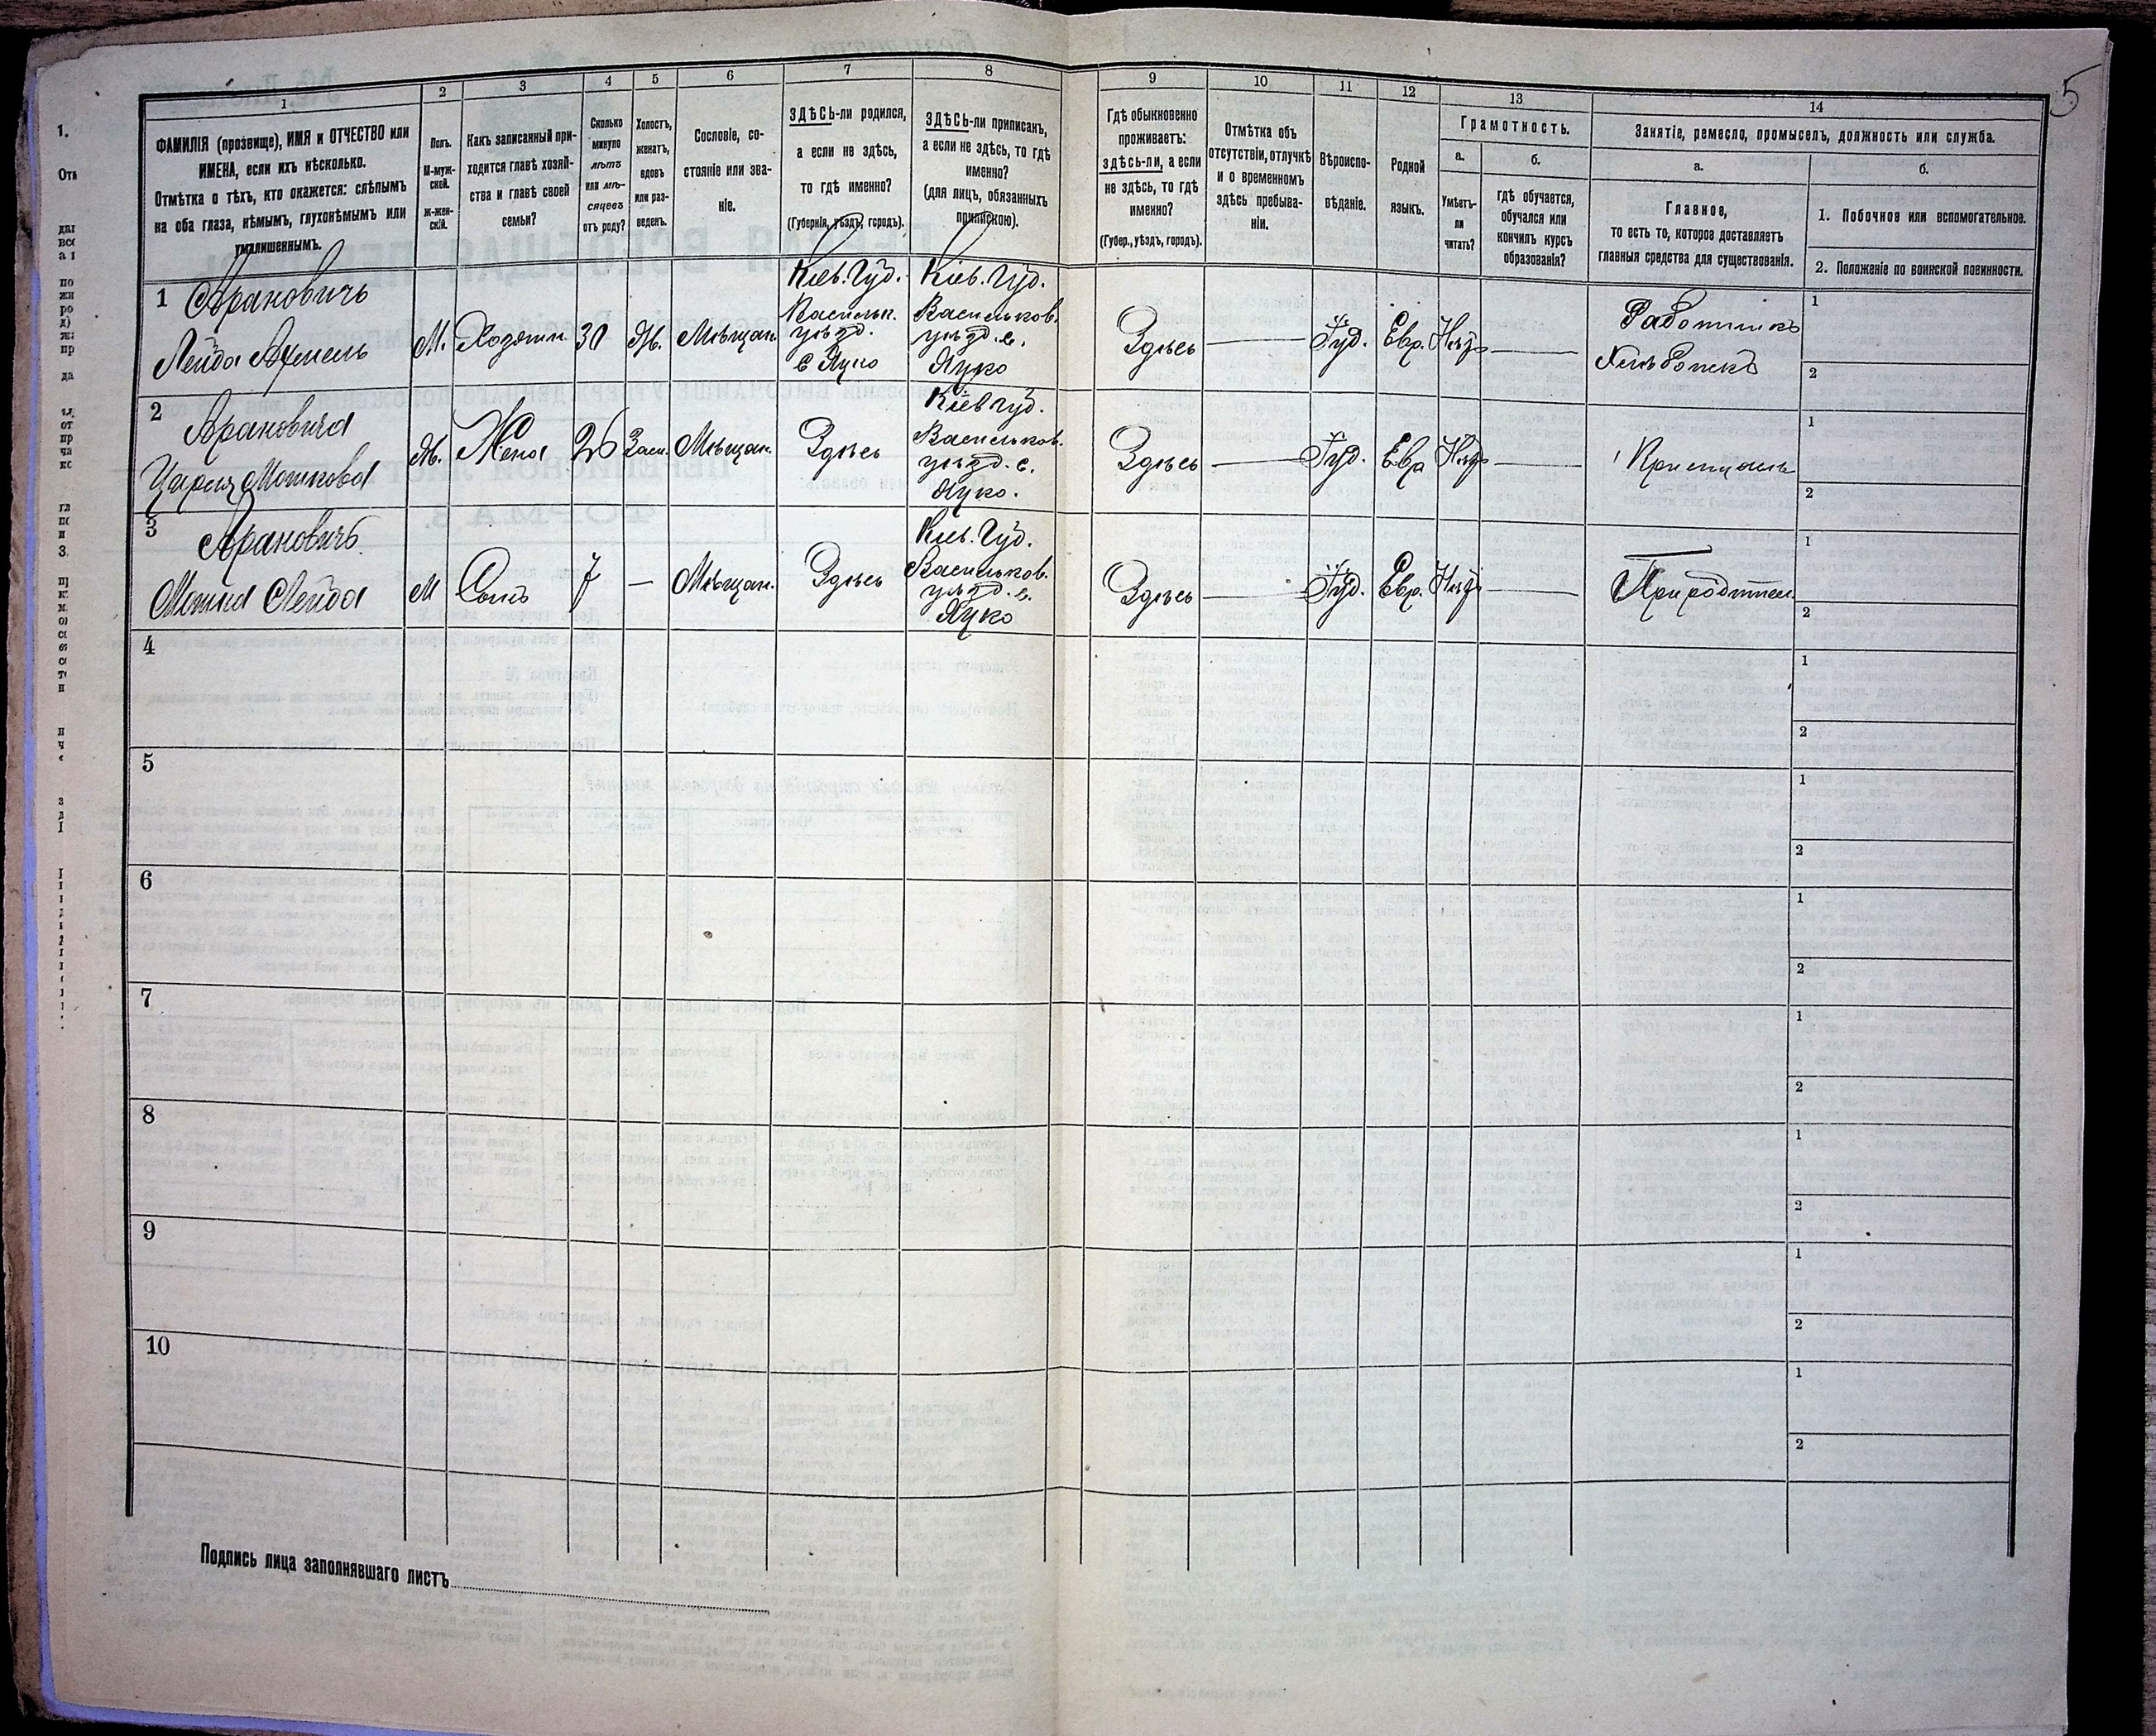 5
1
ФАМИЛІЯ (прозвище), ИМЯ и ОТЧЕСТВО или
ИМЕНА, если ихъ нѣсколько.
Отмѣтка о тѣхъ, кто окажется: слѣпымъ
на оба глаза, нѣмымъ, глухонѣмымъ или
умалишеннымъ.
2
Полъ.
М-муж-
ской.
Ж-жен-
скій.
3
Какъ записанный при-
ходится главѣ хозяй-
ства и главѣ своей
семьи?
4
Сколько
минуло
лѣтъ
или мѣ-
сяцевъ
отъ роду?
5
Холостъ,
женатъ,
вдовъ
или раз-
веденъ.
6
Сословіе, со-
стояніе или зва-
ніе.
7
ЗДѢСЬ-ли родился,
а если не здѣсь,
то гдѣ именно?
(Губернія, уѣздъ, городъ).
8
ЗДѢСЬ-ли приписанъ,
а если не здѣсь, то гдѣ
именно?
(для лицъ, обязанныхъ
припискою).
9
Гдѣ обыкновенно
проживаетъ:
здѣсь-ли, а если
не здѣсь, то гдѣ
именно?
(Губер., уѣздъ, городъ).
10
Отмѣтка объ
отсутствіи, отлучкѣ
и о временномъ
здѣсь пребыва-
ніи.
11
Вѣроиспо-
вѣданіе.
12
Родной
языкъ.
13
Грамотность.
а.
Умѣетъ-
ли
читать?
б.
гдѣ обучается,
обучался или
кончилъ курсъ
образованія?
14
Занятіе, ремесло, промыселъ, должность или служба.
а.
Главное,
то есть то, которое доставляетъ
главныя средства для существованія.
б.
1. Побочное или вспомогательное.
2. Положеніе по воинской повинности.
1
Арановичъ
Лейба
М.
Хозяин.
30
Жв.
Мѣщан.
Кіев. Губ.
Васильк.
уѣзд.
Кіев. Губ.
Васильков.
уѣзд. с.
Здѣсь
Іуд.
Евр.
Нѣт
Работникъ
1
2
2
Арановича
Мошкова
Ж.
Жена
26
Зам.
Мѣщан.
Здѣсь
Кіев губ.
Васильков.
уѣзд. с.
Здѣсь
Іуд.
Евр
Нѣт
При мужѣ
1
2
3
Арановичъ
Мошка Лейба
М
Сынъ
7
—
Мѣщан.
Здѣсь
Кіев. Губ.
Васильков.
уѣзд. с.
Здѣсь
Іуд.
Евр.
Нѣт
При родител
1
2
4
1
2
5
1
2
6
1
2
7
1
2
8
1
2
9
1
2
10
1
2
Подпись лица заполнявшаго листъ